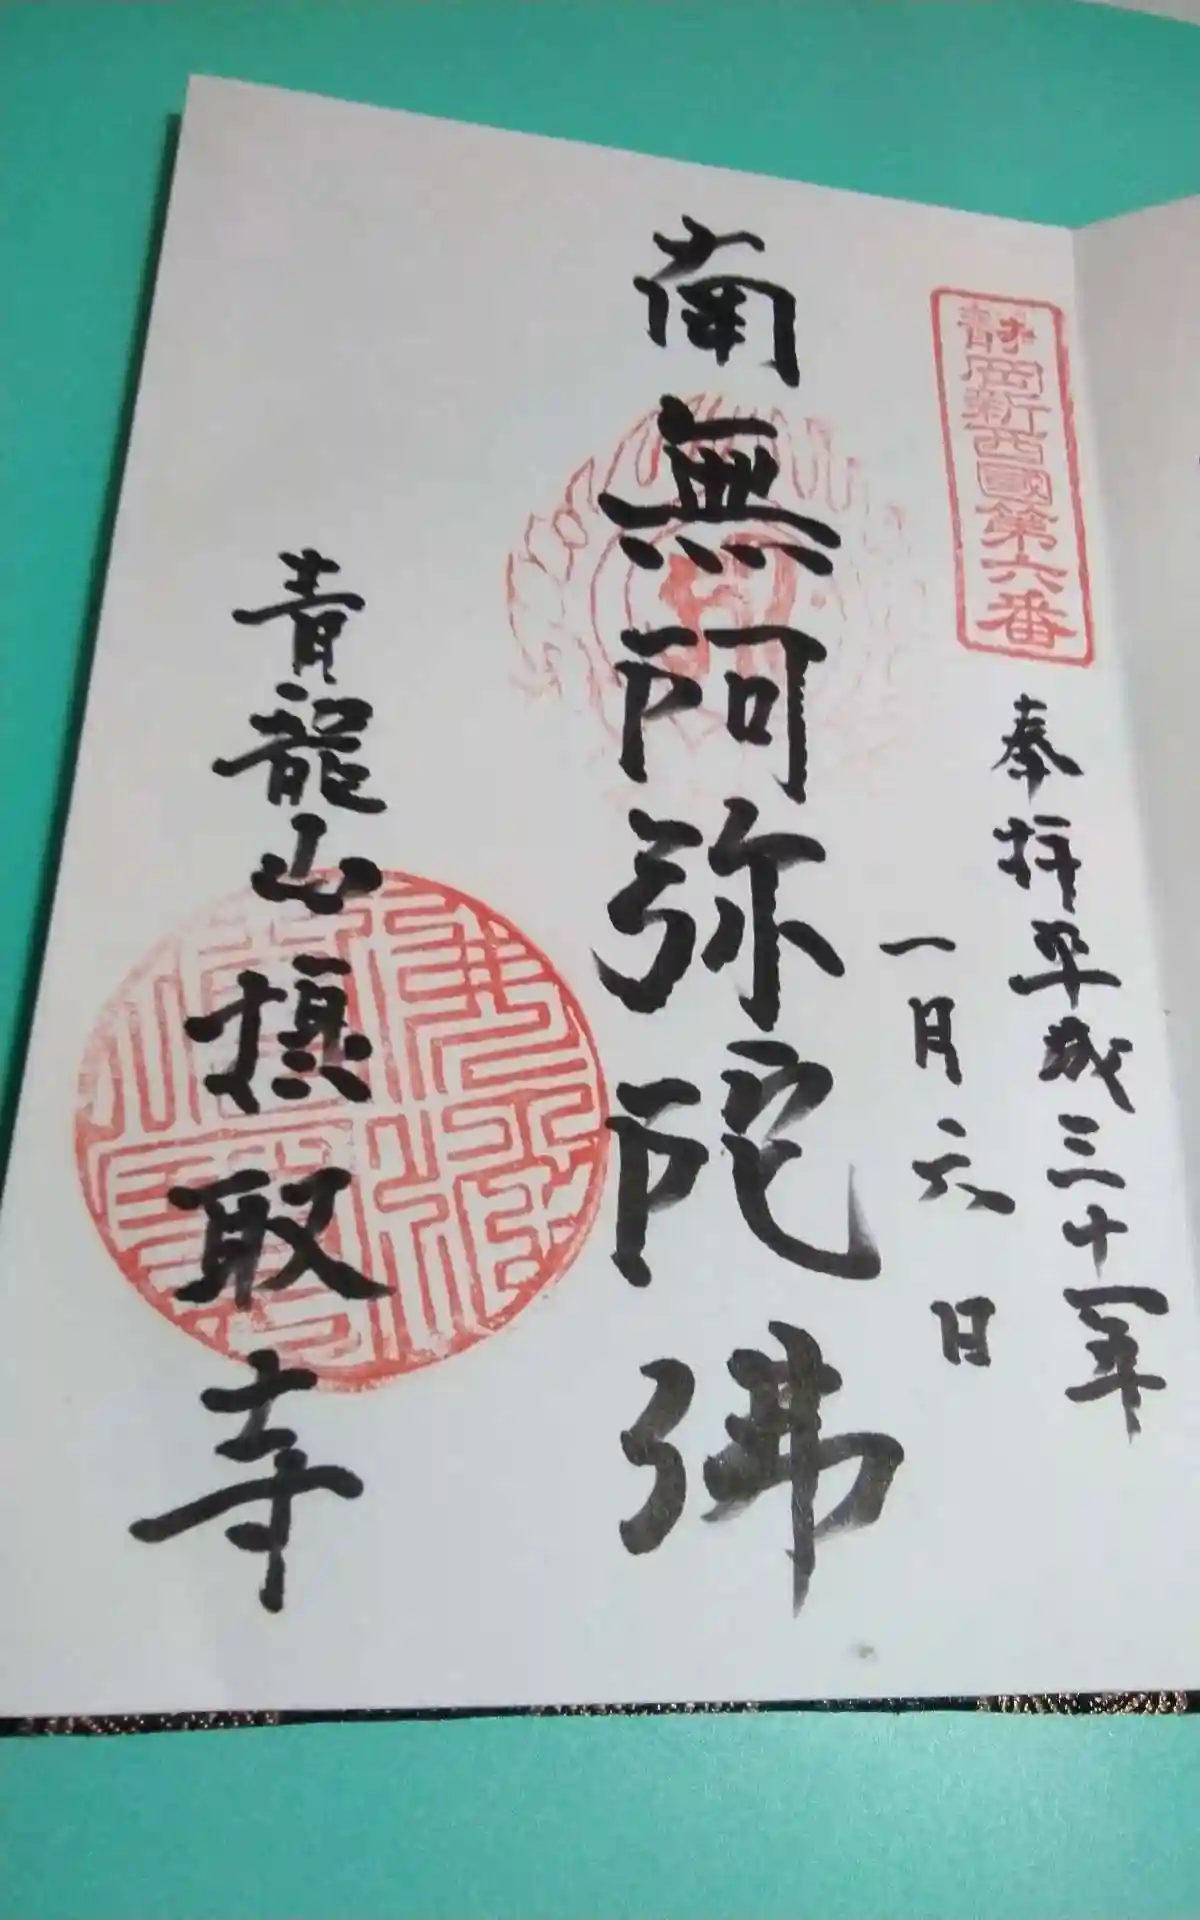 静岡新西國第六番
奉拝平成三十一年
一月六日
南無阿弥陀佛
青龍山摂取寺